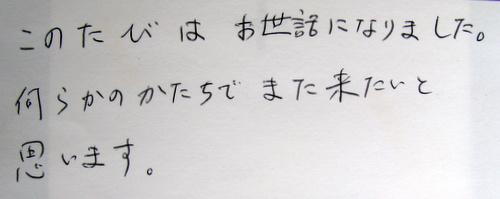 このたびは お世話になりました。
何らかのかたちで また来たいと
思います。